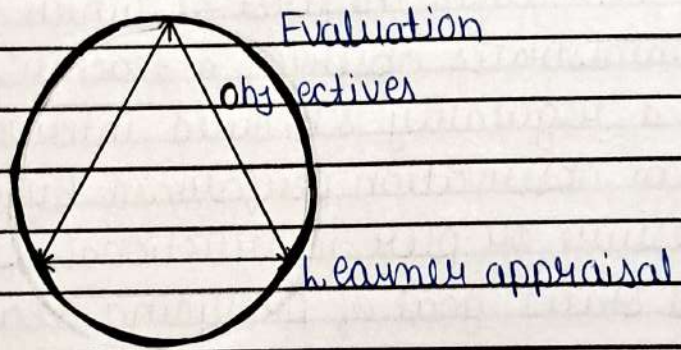 Evaluation
Objectives
Learner appraisal